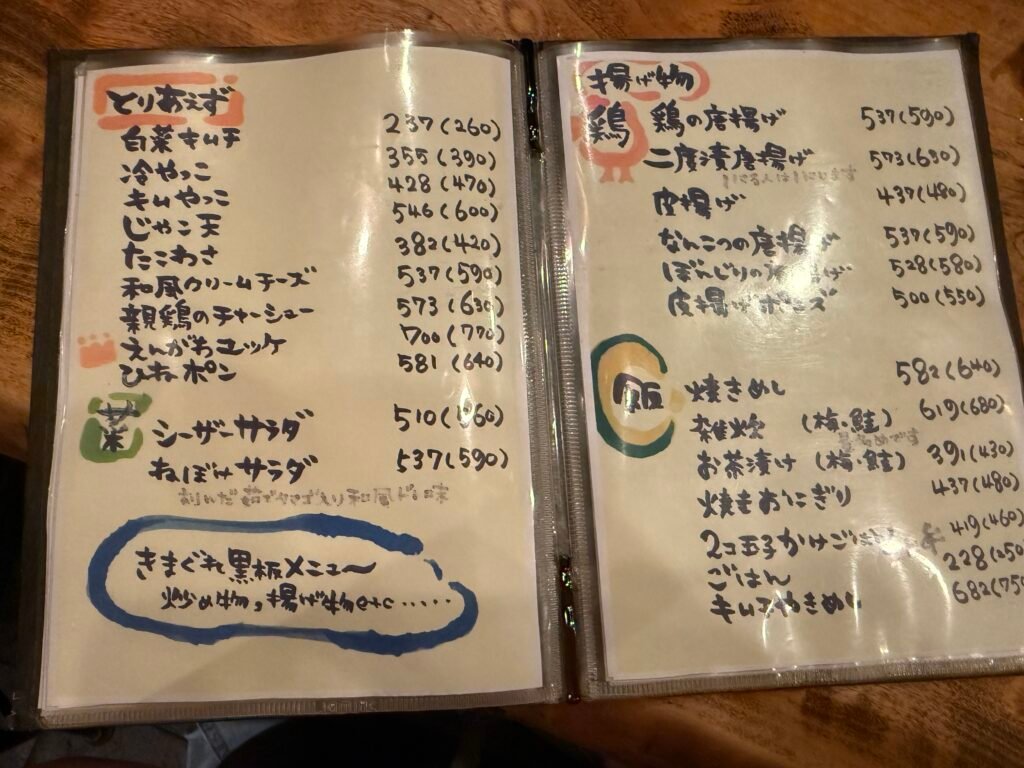 とりあえず
白菜キムチ 237(260)
冷やっこ 355(390)
キムやっこ 428(470)
じゃこ天 546(600)
たこわさ 382(420)
和風クリームチーズ 537(590)
親鶏のチャーシュー 573(630)
えんがわユッケ 700(770)
ひねポン 581(640)
菜
シーザーサラダ 510(560)
ねぼけサラダ 537(590)
刻んだ茹でタマゴ入り和風ドレ味
きまぐれ黒板メニュ〜
炒め物,揚げ物etc.....
揚げ物
鶏
鶏の唐揚げ 537(590)
二度漬唐揚げ 573(630)
皮揚げ 437(480)
なんこつの唐揚げ 537(590)
ぼんじりの唐揚げ 528(580)
皮揚げポンズ 500(550)
飯
焼きめし 582(640)
雑炊 (梅・鮭) 619(680)
お茶漬け (梅・鮭) 391(430)
焼きおにぎり 437(480)
2コ玉子かけごはん 419(460)
ごはん 228(250
キムチやきめし 682(750